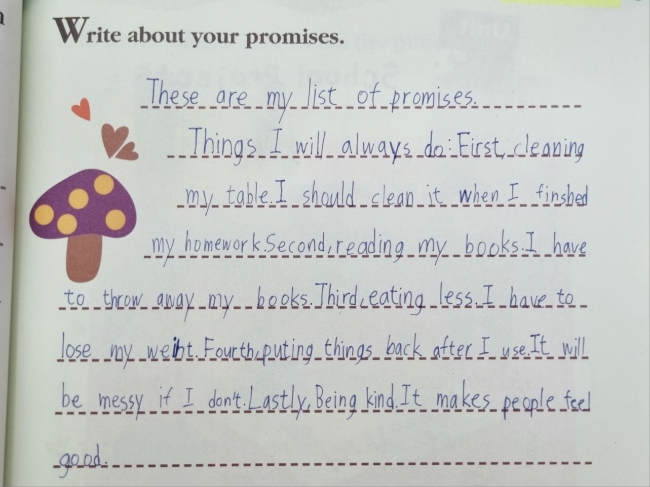 Write about your promises.
These are my list of promises.
Things I will always do: First, cleaning
my table. I should clean it when I finshed
my homework. Second, reading my books. I have
to throw away my books. Third, eating less. I have to
lose my weiht. Fourth, puting things back after I use. It will
be messy if I don't. Lastly, Being kind. It makes people feel
good.